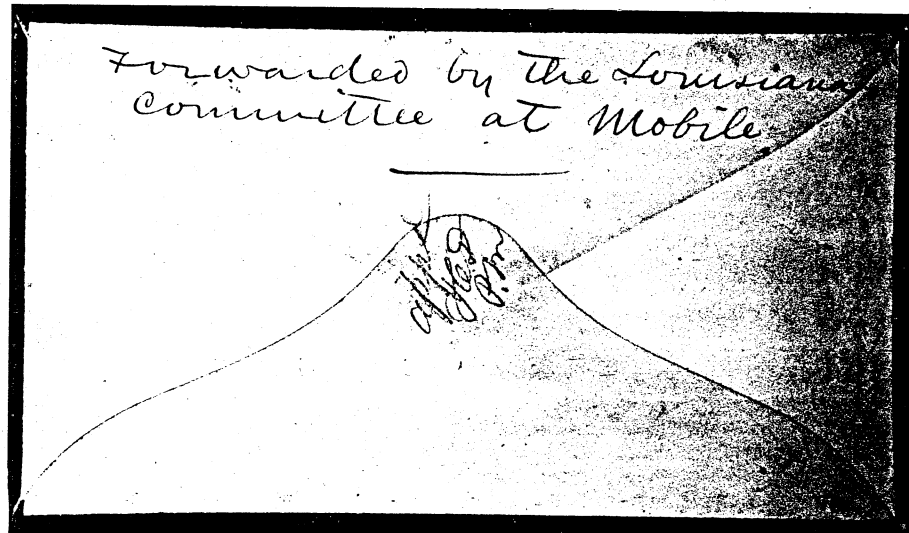 Forwarded by the Louisiana
Committee at Mobile